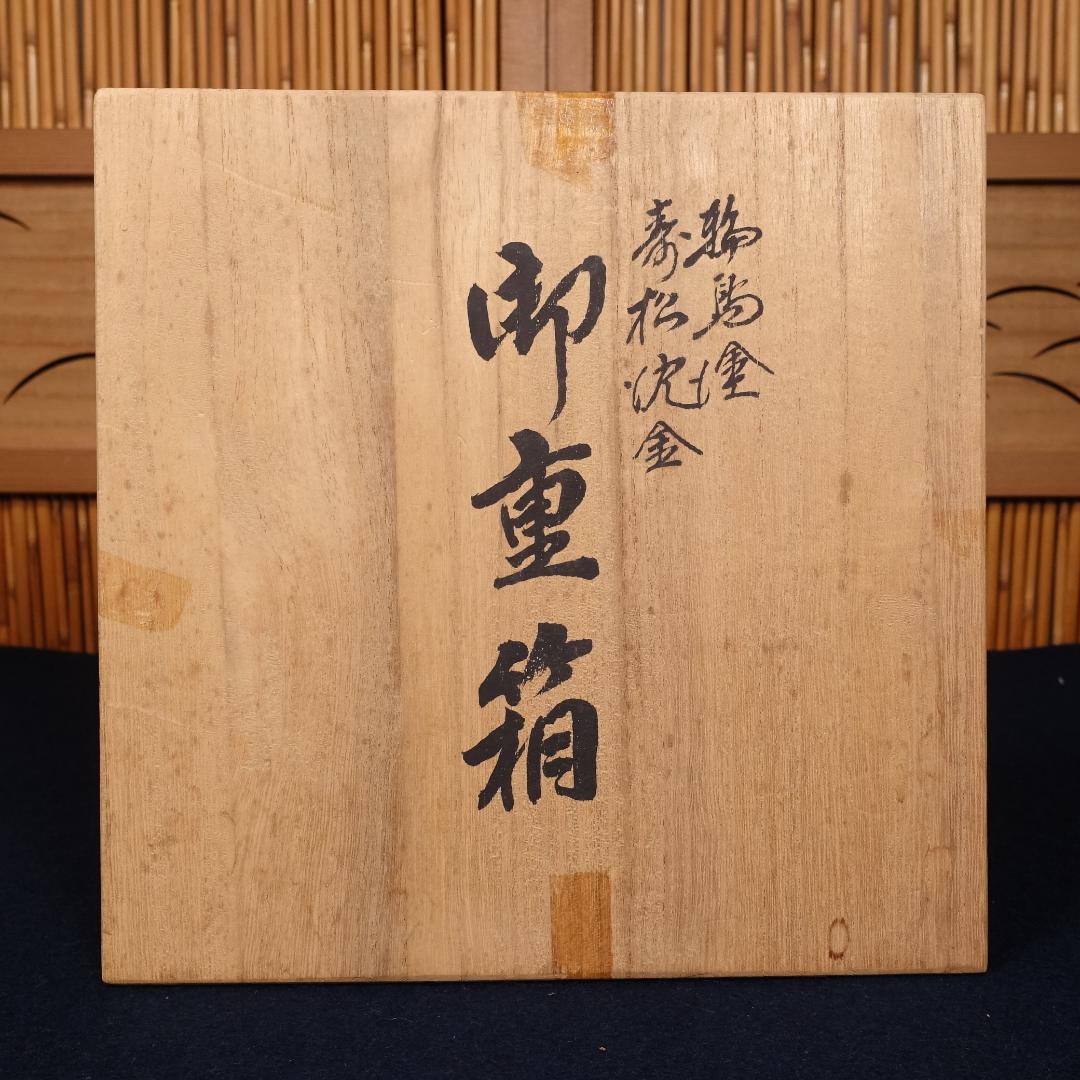 輪島塗
寿松沈金
御重箱